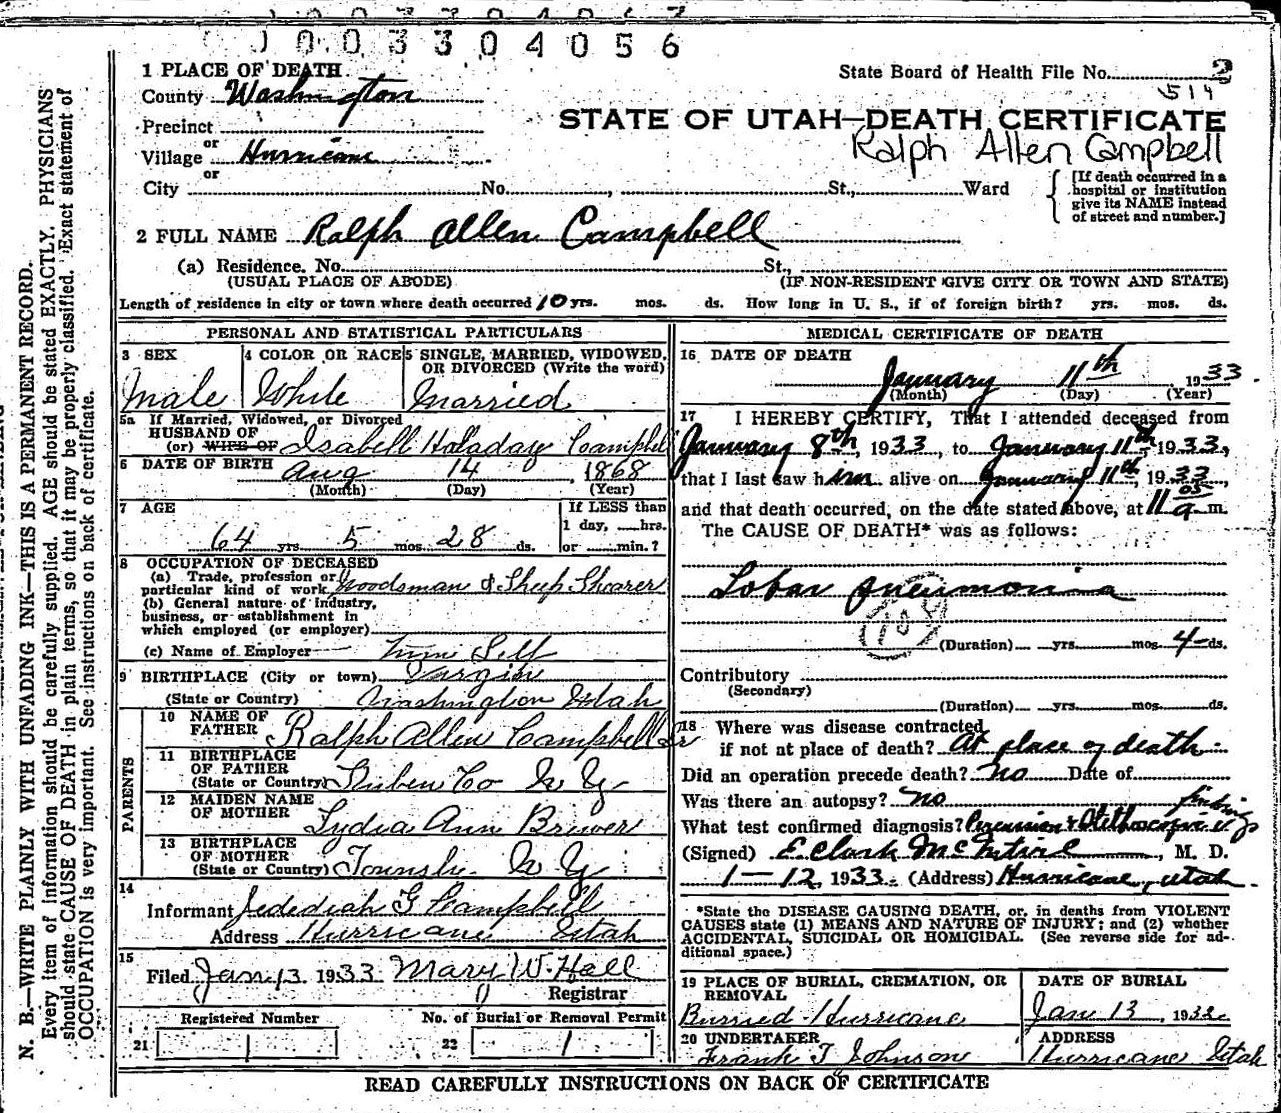 1003304056
1 PLACE OF DEATH
State Board of Health File No. 2
514
County Washington
STATE OF UTAH—DEATH CERTIFICATE
Precinct
Ralph Allen Campbell
or
Village Hurricane
or
City No. , St., Ward
[If death occurred in a
hospital or institution
give its NAME instead
of street and number.]
2 FULL NAME Ralph Allen Campbell
(a) Residence. No. St.,
(USUAL PLACE OF ABODE) (IF NON-RESIDENT GIVE CITY OR TOWN AND STATE)
Length of residence in city or town where death occurred 10 yrs. mos. ds. How long in U. S., if of foreign birth? yrs. mos. ds.
PERSONAL AND STATISTICAL PARTICULARS
3 SEX
Male
4 COLOR OR RACE
White
5 SINGLE, MARRIED, WIDOWED,
OR DIVORCED (Write the word)
Married
5a If Married, Widowed, or Divorced
HUSBAND OF
(or) WIFE OF Isabell Haladay Campbell
6 DATE OF BIRTH Aug 14, 1868
(Month) (Day) (Year)
7 AGE
64 yrs 5 mos 28 ds.
If LESS than
1 day, hrs.
or min.?
8 OCCUPATION OF DECEASED
(a) Trade, profession or
particular kind of work Woodsman & Sheep Shearer
(b) General nature of industry,
business, or establishment in
which employed (or employer)
(c) Name of Employer Self
9 BIRTHPLACE (City or town) Virgin
(State or Country) Washington Utah
PARENTS
10 NAME OF
FATHER Ralph Allen Campbell Sr
11 BIRTHPLACE
OF FATHER
(State or Country) Stuben Co N Y
12 MAIDEN NAME
OF MOTHER Lydia Ann Brewer
13 BIRTHPLACE
OF MOTHER
(State or Country) N Y
14
Informant Jedediah G Campbell
Address Hurricane Utah
15
Filed Jan 13 1933 Mary W. Hall
Registrar
Registered Number No. of Burial or Removal Permit
21 22
MEDICAL CERTIFICATE OF DEATH
16 DATE OF DEATH
January 11th 1933
(Month) (Day) (Year)
17 I HEREBY CERTIFY, That I attended deceased from
January 8th, 1933, to January 11th 1933,
that I last saw him alive on January 11th, 1933,
and that death occurred, on the date stated above, at 11 05 a m.
The CAUSE OF DEATH* was as follows:
Lobar pneumonia
108
(Duration) yrs. mos. 4 ds.
Contributory
(Secondary)
(Duration) yrs. mos. ds.
18 Where was disease contracted
if not at place of death? At place of death
Did an operation precede death? No Date of
Was there an autopsy? No
What test confirmed diagnosis? Percussion & Stethoscopic findings
(Signed) E Clark McIntire, M. D.
1-12, 1933 (Address) Hurricane, Utah
*State the DISEASE CAUSING DEATH, or, in deaths from VIOLENT
CAUSES state (1) MEANS AND NATURE OF INJURY; and (2) whether
ACCIDENTAL, SUICIDAL OR HOMICIDAL. (See reverse side for ad-
ditional space.)
19 PLACE OF BURIAL, CREMATION, OR
REMOVAL
Burried Hurricane
DATE OF BURIAL
Jan 13, 1933
20 UNDERTAKER
Frank T Johnson
ADDRESS
Hurricane Utah
READ CAREFULLY INSTRUCTIONS ON BACK OF CERTIFICATE
N. B.—WRITE PLAINLY WITH UNFADING INK—THIS IS A PERMANENT RECORD.
Every item of information should be carefully supplied. AGE should be stated EXACTLY. PHYSICIANS
should state CAUSE OF DEATH in plain terms, so that it may be properly classified. Exact statement of
OCCUPATION is very important. See instructions on back of certificate.